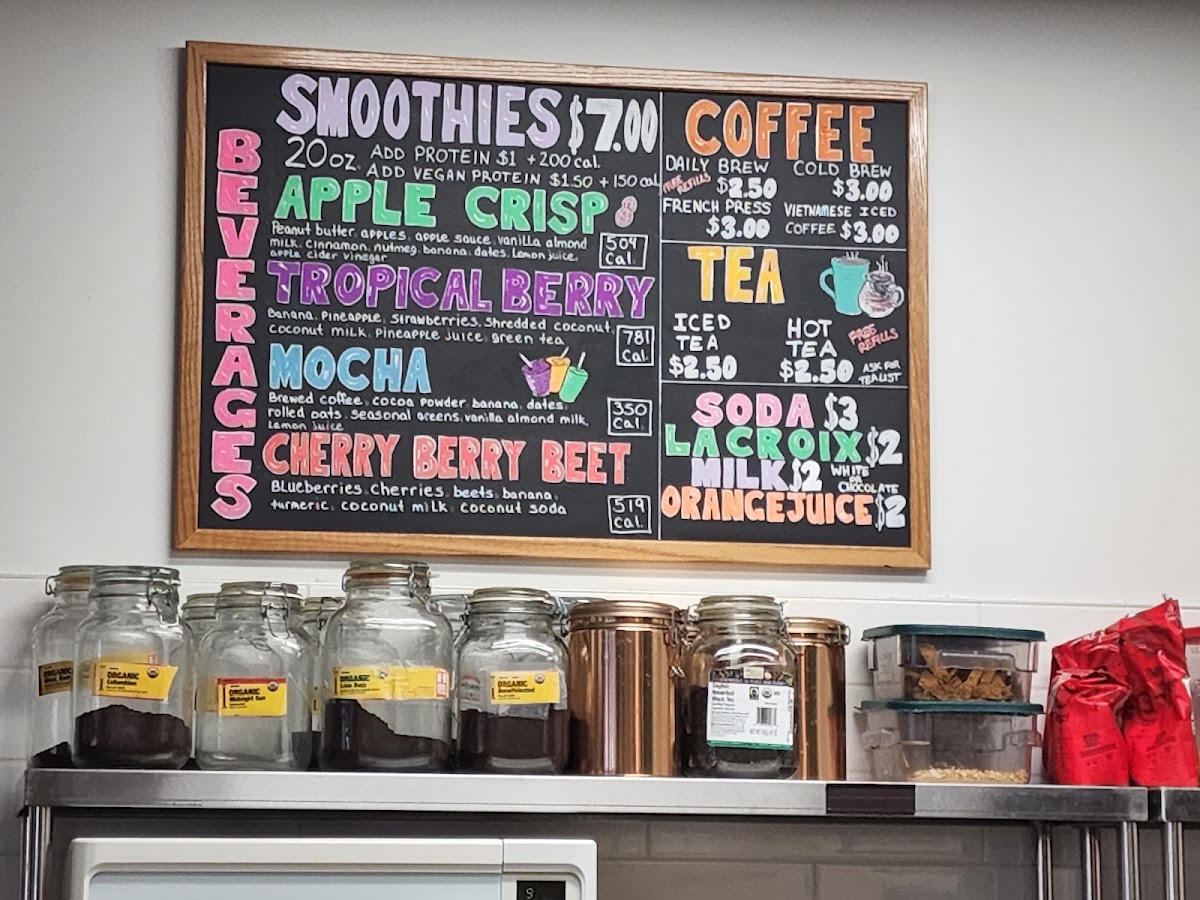 BEVERAGES
SMOOTHIES $7.00
20oz. ADD PROTEIN $1 +200 cal.
ADD VEGAN PROTEIN $1.50 + 150 cal
APPLE CRISP
Peanut butter, apples, apple sauce, vanilla almond
milk, cinnamon, nutmeg, banana, dates, Lemon juice,
apple cider vinegar
504
Cal.
TROPICAL BERRY
Banana, Pineapple, Strawberries, Shredded coconut,
coconut milk, pineapple juice, green tea
781
Cal.
MOCHA
Brewed coffee, cocoa powder, banana, dates,
rolled oats, seasonal greens, vanilla almond milk,
Lemon juice
350
Cal.
CHERRY BERRY BEET
BLueberries, Cherries, beets, banana,
turmeric, coconut milk, coconut soda
519
Cal.
COFFEE
DAILY BREW
FREE REFILLS
$2.50
COLD BREW
$3.00
FRENCH PRESS
$3.00
VIETNAMESE ICED
COFFEE $3.00
TEA
ICED
TEA
$2.50
HOT
TEA
$2.50
FREE
REFILLS
ASK FOR
TEA LIST
SODA $3
LACROIX $2
MILK $2 WHITE
OR
CHOCOLATE
ORANGE JUICE $2
ORGANIC
ORGANIC
Colombian
ORGANIC
Midnight Sun
ORGANIC
Love Buzz
ORGANIC
Decaffeinated
Black Tea